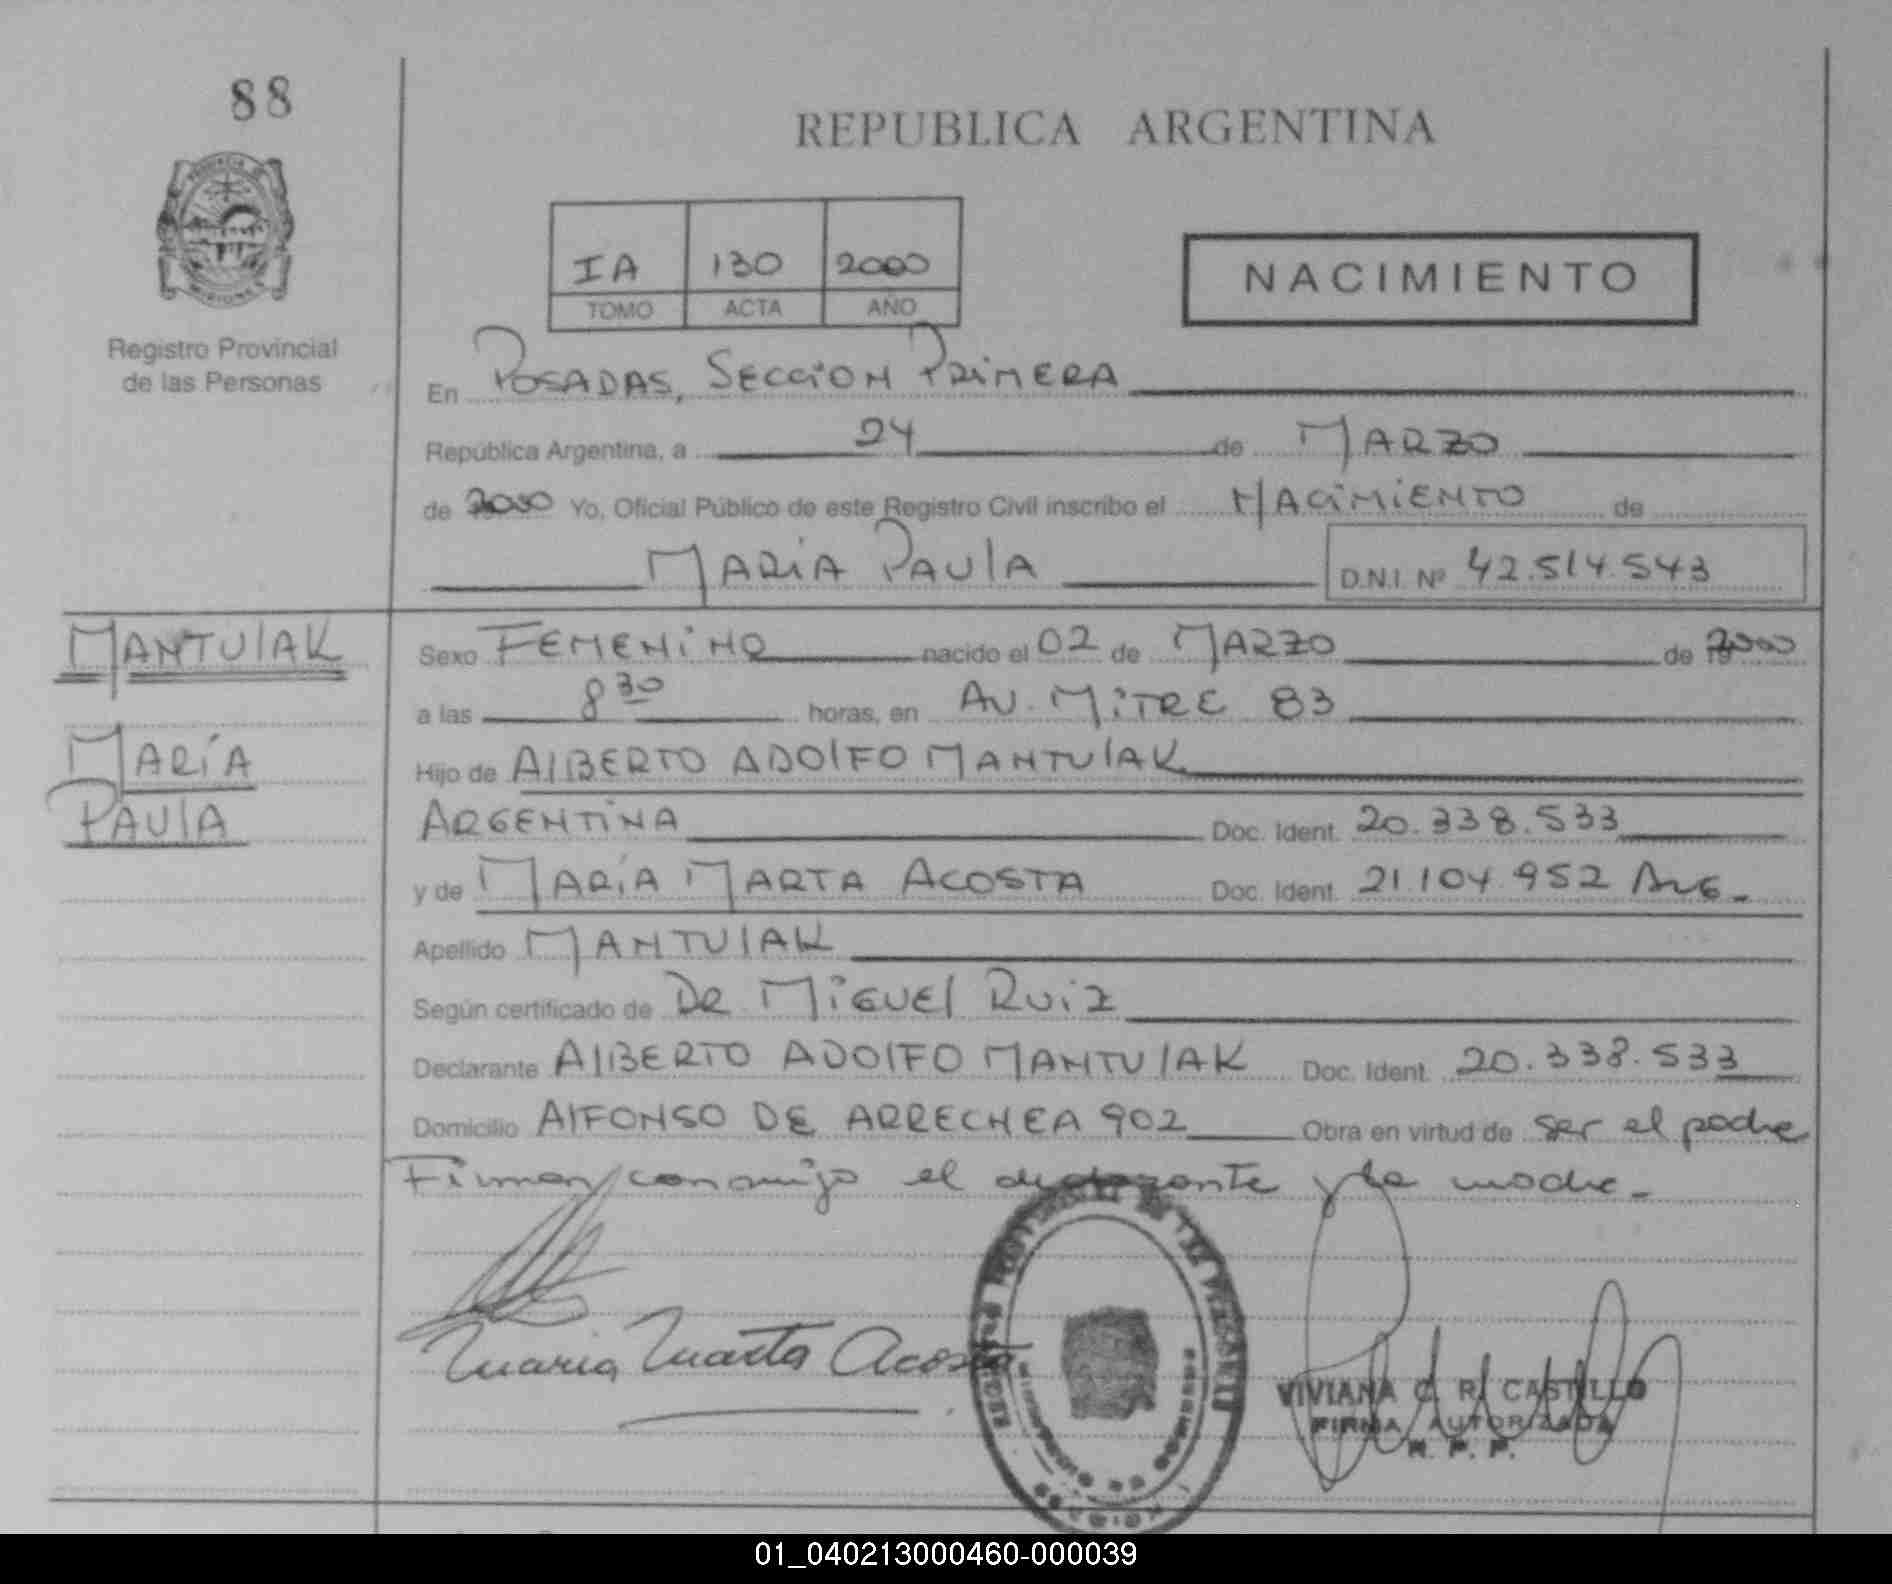 88
REPUBLICA ARGENTINA
PROVINCIA DE
MISIONES
Registro Provincial
de las Personas
IA 130 2000
TOMO ACTA AÑO
NACIMIENTO
En POSADAS, SECCION PRIMERA
República Argentina, a 24 de MARZO
de 2000 Yo, Oficial Público de este Registro Civil inscribo el NACIMIENTO de
MARIA PAULA D.N.I. Nº 42.514.543
MANTULAK
MARÍA
PAULA
Sexo FEMENINO nacido el 02 de MARZO de 2000
a las 8 30 horas, en AV. MITRE 83
Hijo de ALBERTO ADOLFO MANTULAK
ARGENTINA Doc. Ident. 20.338.533
y de MARÍA MARTA ACOSTA Doc. Ident. 21.104.952 ARG.
Apellido MANTULAK
Según certificado de DR MIGUEL RUIZ
Declarante ALBERTO ADOLFO MANTULAK Doc. Ident. 20.338.533
Domicilio ALFONSO DE ARRECHEA 902 Obra en virtud de ser el padre
Firman conmigo el declarante y la madre.
Maria Marta Acosta
VIVIANA C. R. CASTILLO
FIRMA AUTORIZADA
R. P. P.
01_040213000460-000039